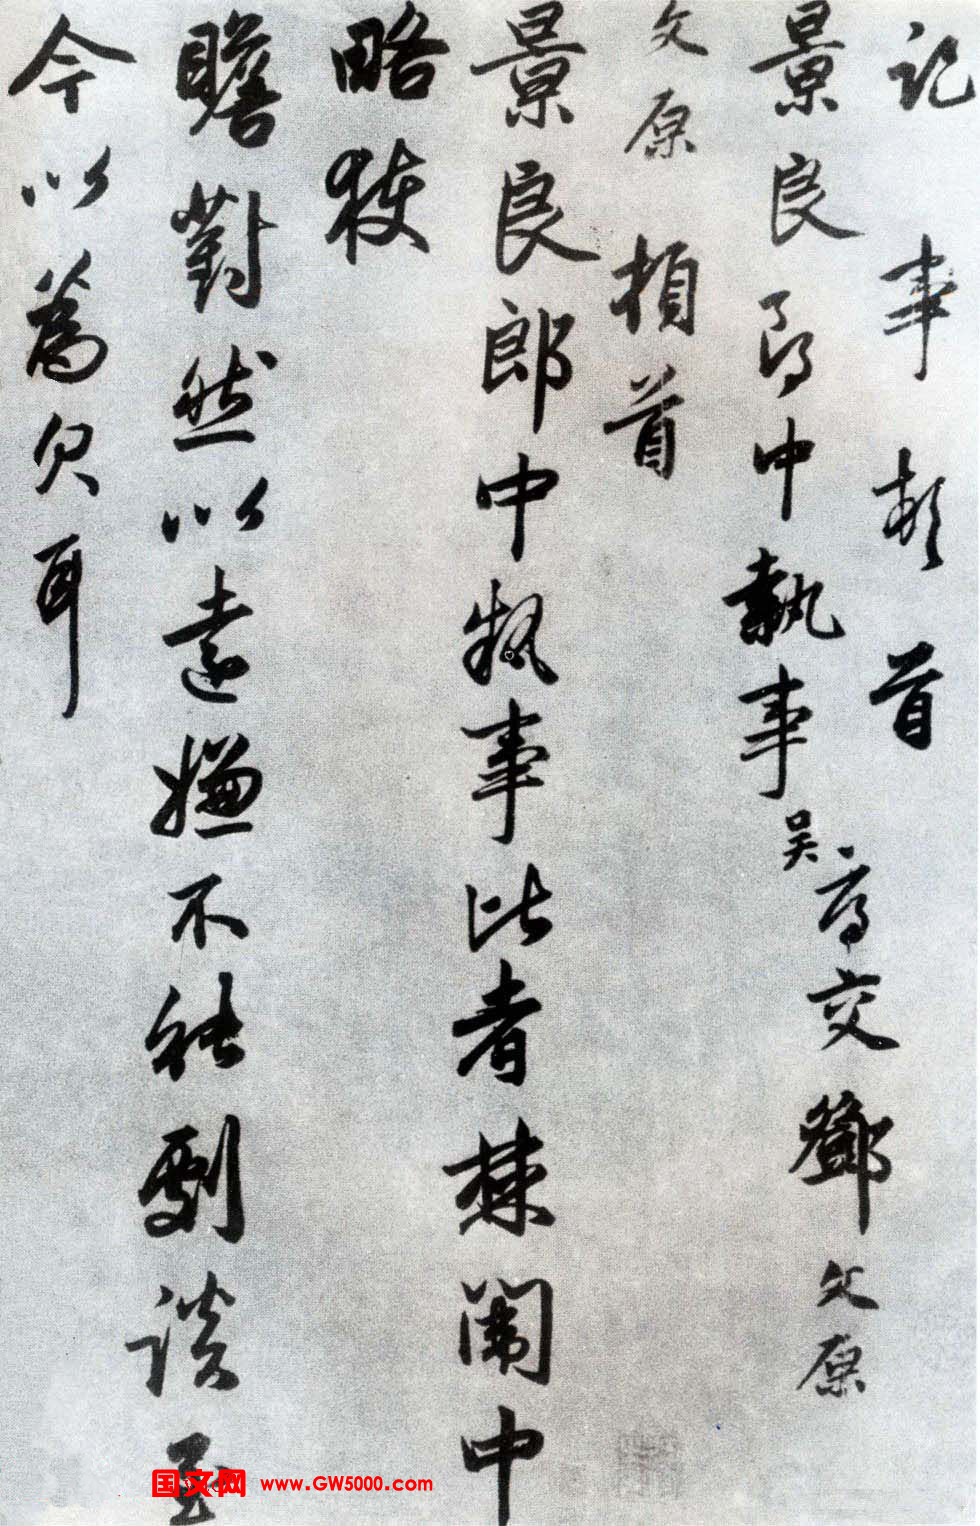 記事頓首
景良郎中執事
吳交鄧文原
文原頓首
景良郎中執事比者棘闈中
略獲
瞻對然以遠嫌不能劇談至
今以為欠耳
国文网 www.GW5000.com